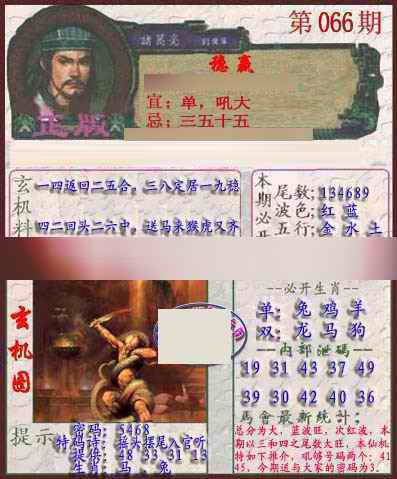 第066期
諸葛亮
稳赢
宜：单，吼大
忌：三五十五
正版
玄机料
一四返回二五合，三八定居一九稳
四二回头二六中，送马来猴虎又齐
本期必开
尾数：134689
波色：红 蓝
五行：金 水 土
玄机图
必开生肖
单：兔 鸡 羊
双：龙 马 狗
内部泄码
19 31 43 37 49
39 30 42 40 36
馬會最新統計：
总分为大，蓝波旺，次红波，本
期以三和四之尾数大旺，本仙机
特如下推介，吼够号码两个：41
45，今期送与大家的密码为3.
提示
密码：5468
特码诗：摇头摆尾入官听
提供：48 33 31 13
生肖：马、兔